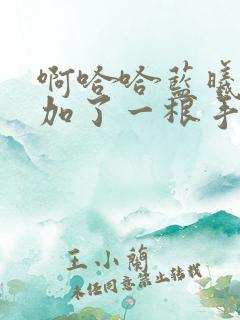 啊哈哈蓝曦
加了一根手
王小蘭
未经同意禁止转载